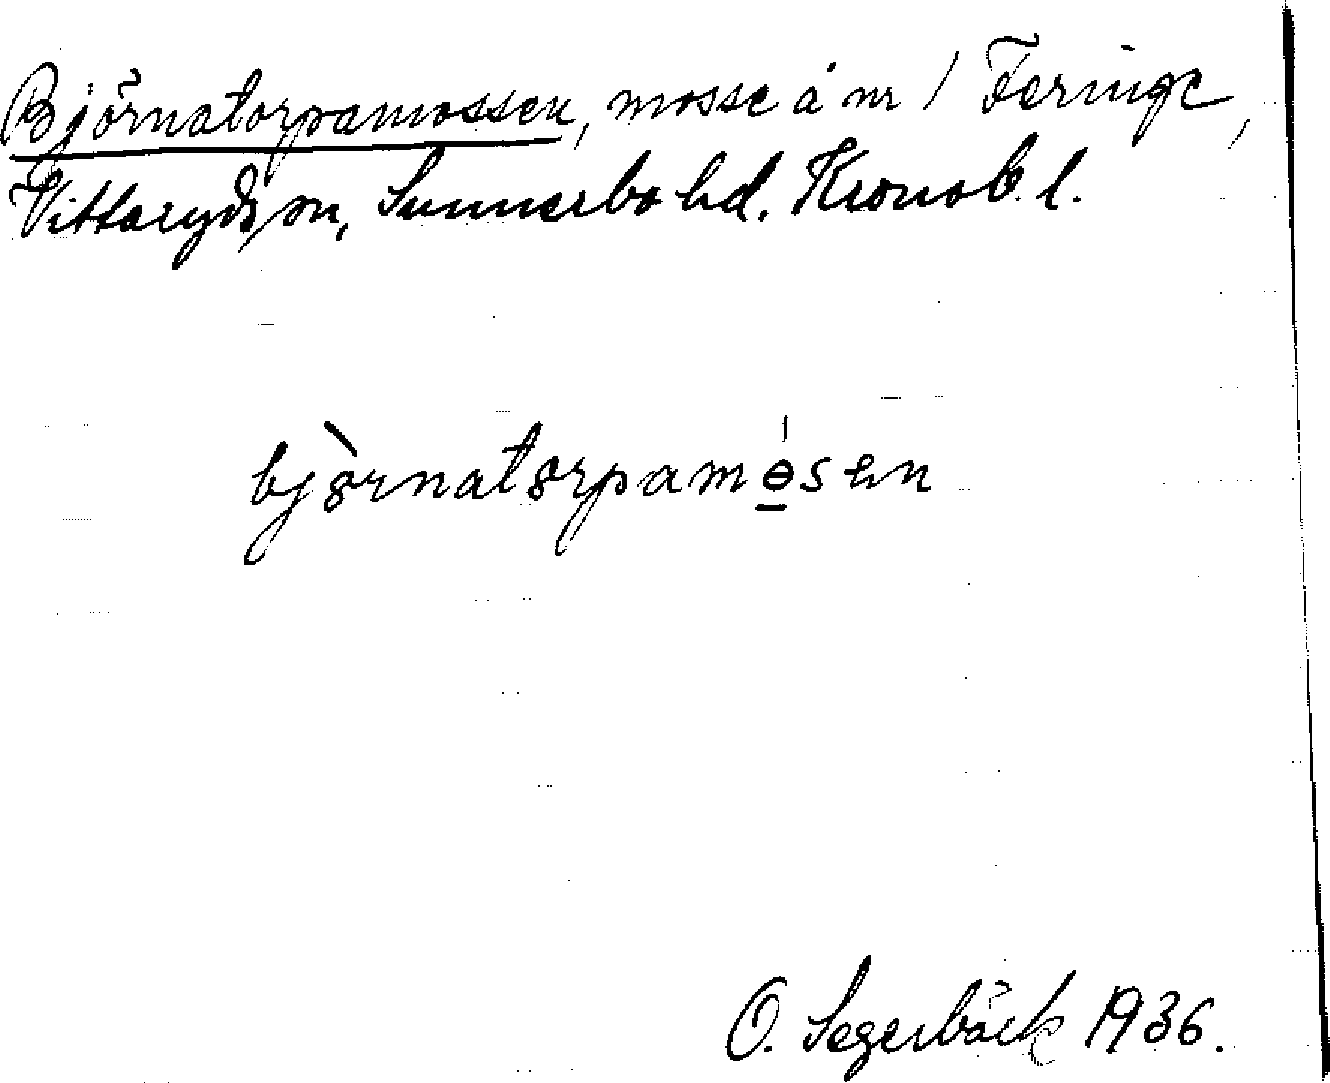 Björnatorpamossen, mosse å nr 1 Feringe,
Vittaryds sn, Sunnerbo hd. Kronob. l.
bjò̀rnatorpamɵ́sen
O. Segerbäck 1936.